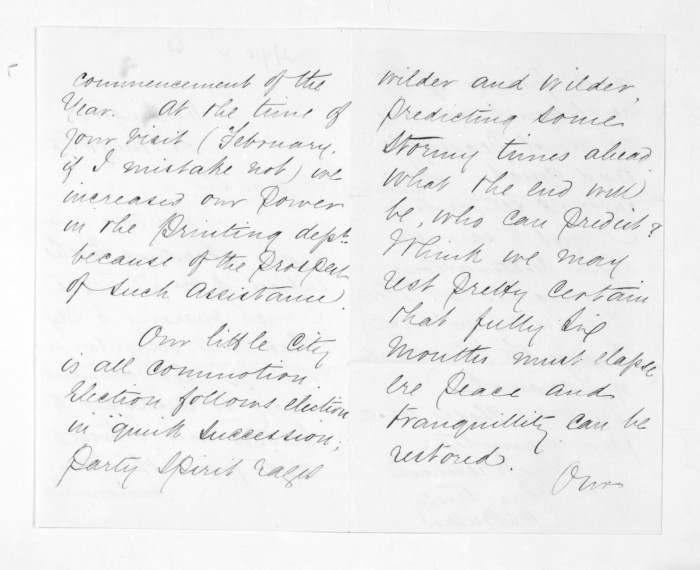 commencement of the
Year. At the time of
your visit (February,
if I mistake not) we
increased our Power
in the Printing dept.
because of the Prospect
of such Assistance.
Our little City
is all commotion.
Election follows election
in quick succession;
Party Spirit rages
wilder and wilder,
Predicting some
Stormy times ahead
What the end will
be, who can predict?
Think we may
rest pretty certain
that fully Six
Months must elapse
ere Peace and
tranquillity can be
restored.
Our